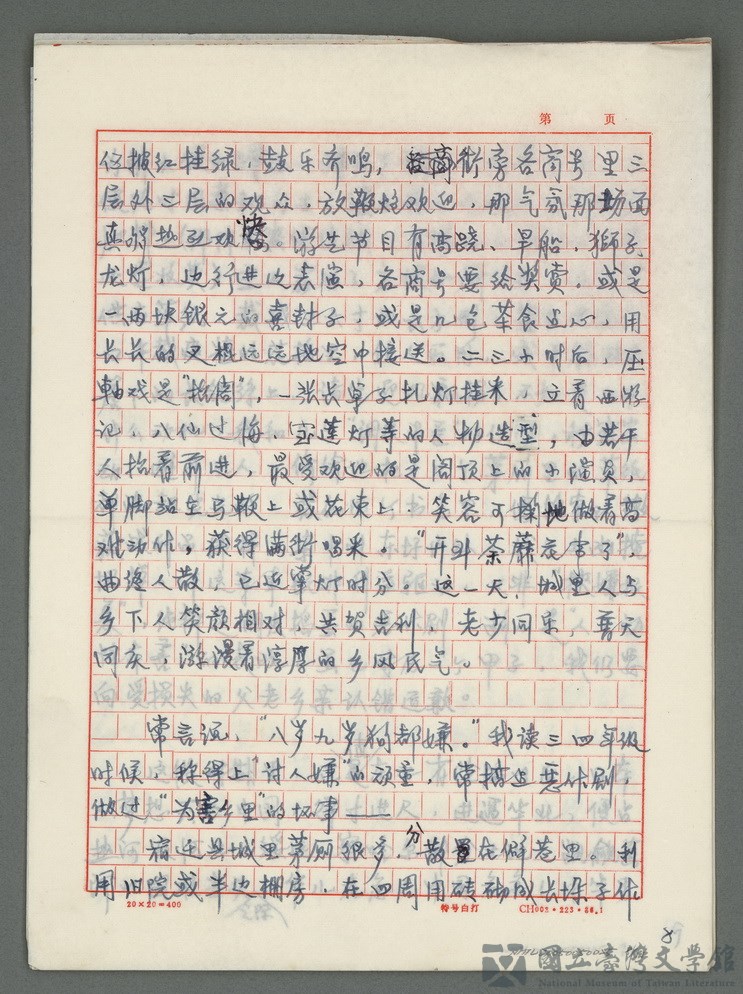 第 页
位披红挂绿,鼓乐齐鸣,街旁各商号里三
层外三层的观众,放鞭炮欢迎,那气氛那场面
真够热烈欢快。游艺节目有高跷、旱船,狮子
龙灯,边行进边表演,各商号要给奖赏,或是
一两块银元的喜封子,或是几包茶食点心,用
长长的叉棍远远地空中接送。二三小时后,压
轴戏是“抬阁”,一张长桌子扎灯挂米,立着西游
记,八仙过海,宝莲灯等的人物造型,由若干
人抬着前进,最受欢迎的是阁顶上的小演员,
单脚站在马鞭上或花束上,笑容可掬地做着高
难动作,获得满街喝采。“开到荼蘼花事了”,
曲终人散,已近掌灯时分。这一天,城里人与
乡下人笑颜相对,共贺吉利,老少同乐,普天
同庆,弥漫着淳厚的乡风民气。
常言说,“八岁九岁狗都嫌。”我读三四年级
时候,称得上“讨人嫌”的顽童,常搞点恶作剧,
做过“为害乡里”的坏事——
宿迁县城里茅厕很多,分散在僻巷里。利
用旧院或半边棚房,在四周用砖砌成长垛子作
20×20=400 特号白打 CH002·223·86.1
8
國立臺灣文學館
National Museum of Taiwan Literature